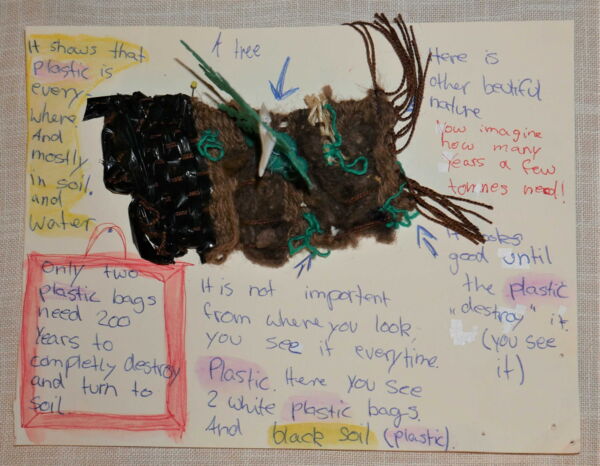 It shows that
plastic is
every-
where
And
mostly
in soil
and
water
A tree
Here is
other beutiful
nature
Now imagine
how many
years a few
tonnes need!
Only two
plastic bags
need 200
Years to
completly destroy
and turn to
soil
It is not important
from where you look,
you see it everytime.
Plastic. Here you see
2 white plastic bags
And black soil (plastic).
It looks
good until
the plastic
„destroy" it.
(you see
it)